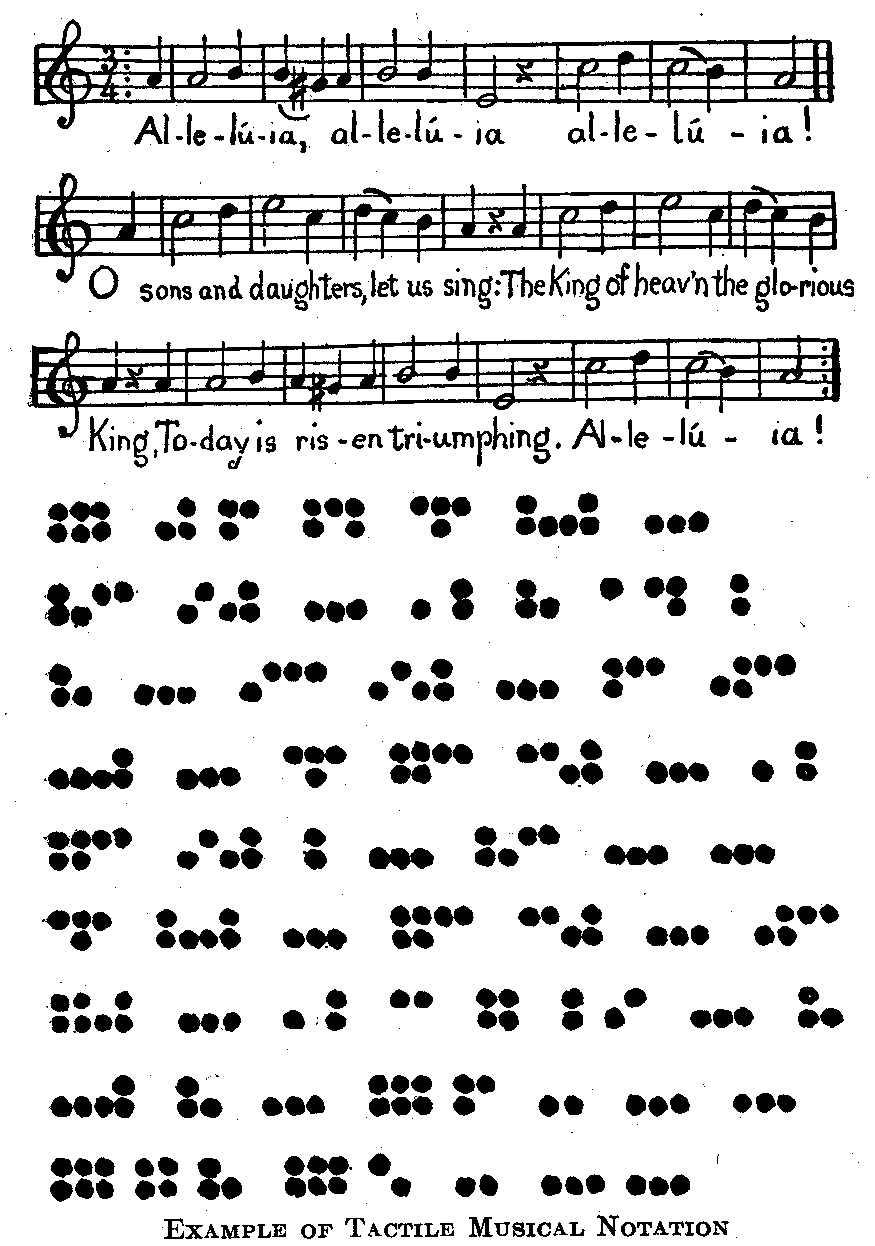 3
4
Al-le-lú-ia, al-le-lú-ia al-le-lú-ia!
O sons and daughters, let us sing: The King of heav'n the glo-rious
King, To-day is ris-en tri-umphing. Al-le-lú-ia!
EXAMPLE OF TACTILE MUSICAL NOTATION